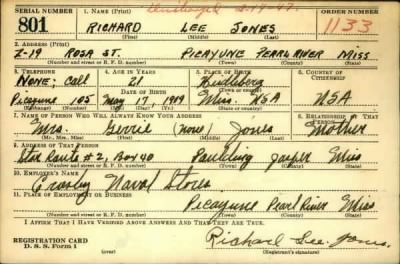 SERIAL NUMBER 1. NAME (Print) 2-19-47. 1133
801 RICHARD LEE JONES
(First) (Middle) (Last)
2. ADDRESS (Print)
2-19 ROSA ST. PICAYUNE PEARL RIVER MISS
(Number and street or R. F. D. number) (Town) (County) (State)
3. TELEPHONE 4. AGE IN YEARS 5. PLACE OF BIRTH 6. COUNTRY OF CITIZENSHIP
None; Call 21 Heidleberg
DATE OF BIRTH (Town or county)
Picayune 105 May 17, 1919 Miss. USA USA
(Mo.) (Day) (Yr.) (State or country)
7. NAME OF PERSON WHO WILL ALWAYS KNOW YOUR ADDRESS 8. RELATIONSHIP OF THAT PERSON
Mrs. (none) Jones Mother
(Mr., Mrs., Miss) (First) (Middle) (Last)
9. ADDRESS OF THAT PERSON
Star Route #2, Box 40 Paulding Jasper Miss
(Number and street or R. F. D. number) (Town) (County) (State)
10. EMPLOYER'S NAME
Crosby Naval Stores
11. PLACE OF EMPLOYMENT OR BUSINESS
Picayune Pearl River Miss
(Number and street or R. F. D. number) (Town) (County) (State)
I AFFIRM THAT I HAVE VERIFIED ABOVE ANSWERS AND THAT THEY ARE TRUE.
REGISTRATION CARD Richard Lee Jones.
D. S. S. Form 1 (Registrant's signature)